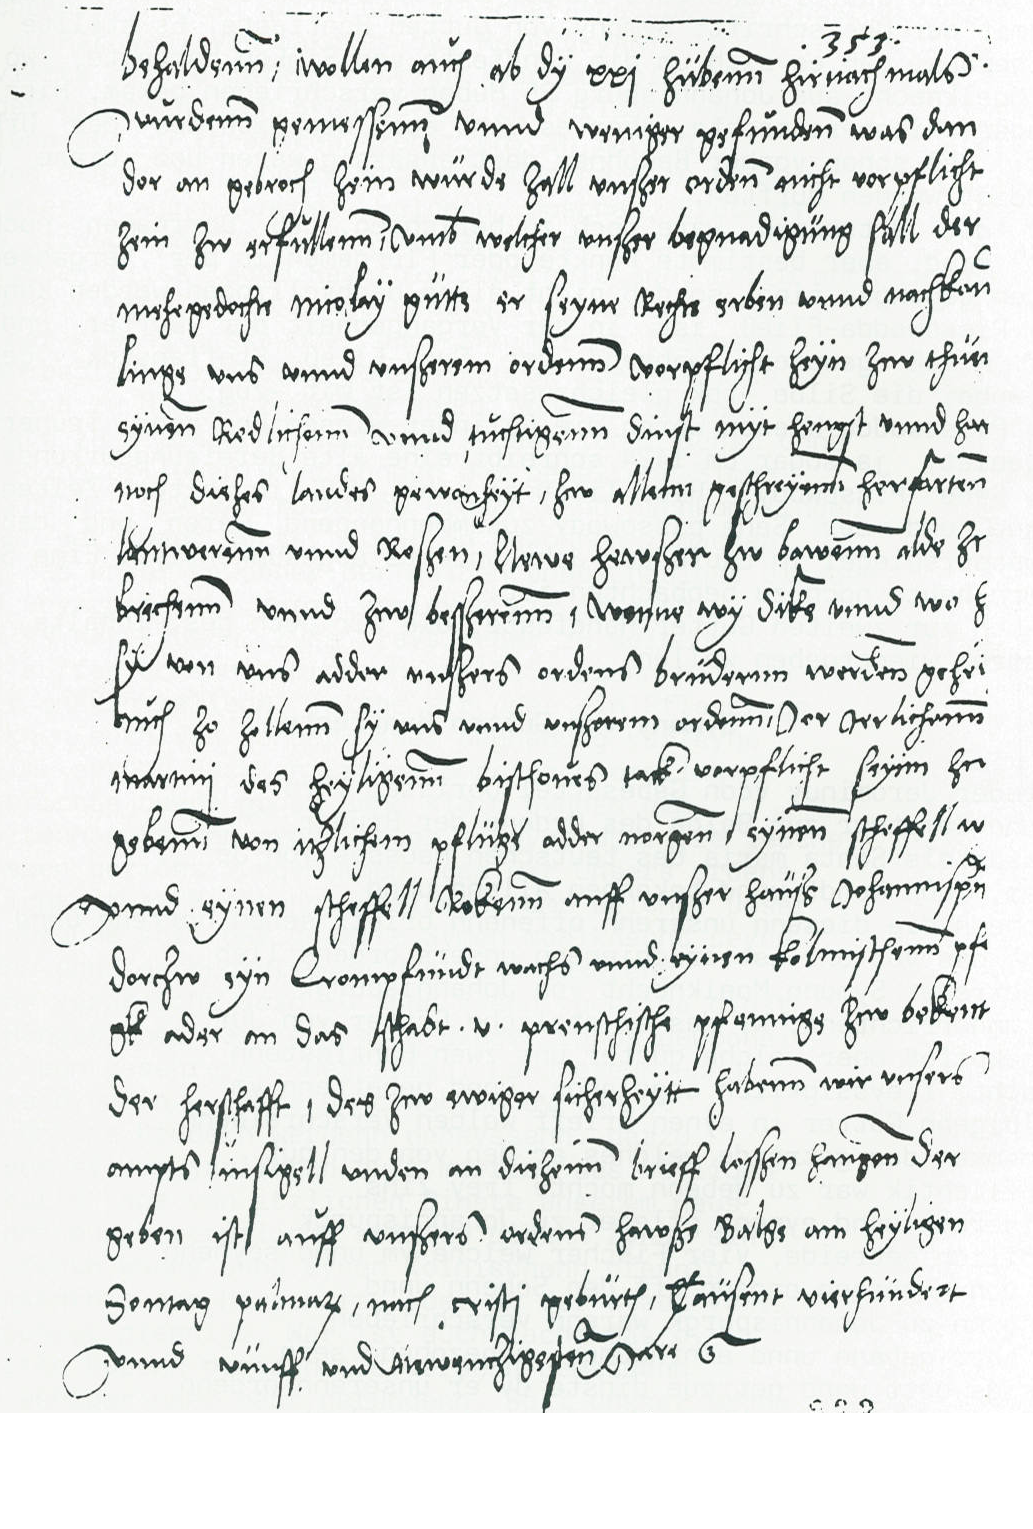 353.
behaldenn, wollen auch ab dy xxi hübenn hirnachmals
würdenn gemessenn vnnd weniger gefunden was dan
dor an gebroch hein würde zall vnszer orden nicht vorpflicht
zein zw erfüllenn, vmb welcher vnszer begnadigüng sall der
mehegedochte nicolay gütte er seyne Rechte erben vnnd nachkom
linge vns vnnd vnszerem ordenn vorpflicht heyn zw thün
eynen Redlichenn vnnd tuchtigenn dinst myt hengst vnnd har
noch diehes landes gewonheyt, zw allenn geschreyenn herfarten
lantwerenn vnnd Reszen, Newe hewszer zw bawenn alde zc
brechenn vnnd zw besszerenn, Wenne wy dike vnnd wo
sy von vns adder vnszers ordens brüdernn werden gehei
auch zo zollenn sy vns vnnd vnszerem ordenn Jer Jerlichenn
martini des heyligenn bischoues tack vorpflicht seyn zw
gebenn von itzlichem pflüge adder morgen eynen scheffell w
vnnd eynen scheffell Rokenn auff vnszer hausz Johannispu
dorczw eyn Crompfundt wachs vnnd eynen kolmischenn pfe
gk ader an das schadt . v . preuschische pfennige zw bekent
der herschafft, des zw ewiger sicherheytt habenn wir vnsers
ampts insigell vnden an diehenn brieff losszen hangen Der
geben ist auff vnszers ordens hawsze Balge am heyligen
Sontag palmar, nach cristi gebürth, Tausent vierhündert
vnnd vünff vnd Newenczigesten Jare